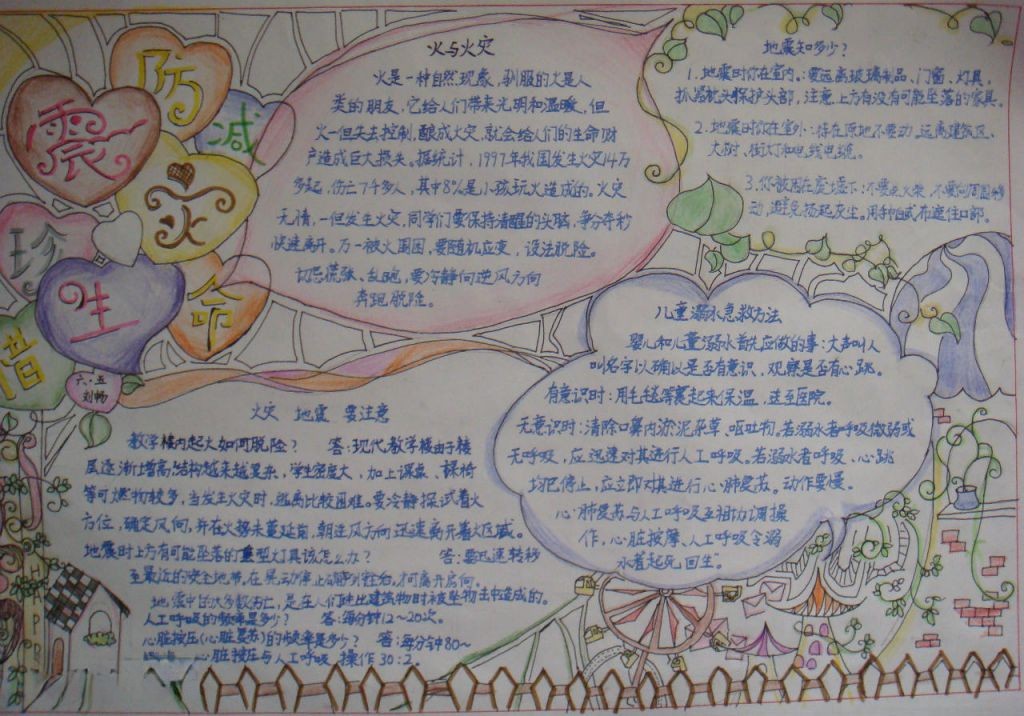 防
震
减
灾
珍
生
命
惜
六·五
刘畅
火与火灾
火是一种自然现象，驯服的火是人
类的朋友，它给人们带来光明和温暖，但
火一但失去控制，酿成火灾，就会给人们的生命财
产造成巨大损失。据统计，1997年我国发生火灾14万
多起，伤亡7千多人，其中8%是小孩玩火造成的。火灾
无情，一但发生火灾，同学们要保持清醒的头脑，争分夺秒
快速离开。万一被火围困，要随机应变，设法脱险。
切忌慌张、乱跑，要冷静向逆风方向
奔跑脱险。
地震知多少？
1.地震时你在室内：要远离玻璃制品、门窗、灯具，
抓 枕头保护头部，注意上方有没有可能坠落的家具。
2.地震时你在室外：待在原地不要动，远离建筑区、
大树、街灯和电线电缆。
3.你被困在废墟下：不要点火柴，不要向周围移
动，避免扬起灰尘。用手帕或布遮住口部。
儿童溺水急救方法
婴儿和儿童溺水首先应做的事：大声叫人
叫名字以确认是否有意识，观察是否有心跳。
有意识时：用毛毯等裹起来保温，送至医院。
无意识时：清除口鼻内淤泥杂草、呕吐物。若溺水者呼吸微弱或
无呼吸，应迅速对其进行人工呼吸。若溺水者呼吸、心跳
均已停止，应立即对其进行心肺复苏。动作要慢。
心肺复苏与人工呼吸互相协调操
作，心脏按摩、人工呼吸令溺
水者起死回生。
火灾 地震 要注意
教学楼内起火如何脱险？ 答：现代教学楼由于楼
层逐渐增高，结构越来越复杂，学生密度大，加上课桌、课椅
等可燃物较多，当发生火灾时，逃离比较困难。要冷静探试着火
方位，确定风向，并在火势未蔓延前，朝逆风方向迅速离开着火区域。
地震时上方有可能坠落的重型灯具该怎么办？ 答：要迅速转移
至最近的安全地带，在晃动停止
地震中的大多数伤亡，是在人们进出建筑物时被坠物击中造成的。
人工呼吸的频率是多少？ 答：每分钟12～20次。
心脏按压（心脏复苏）的频率是多少？ 答：每分钟80～
心脏按压与人工呼吸 操作30：2。